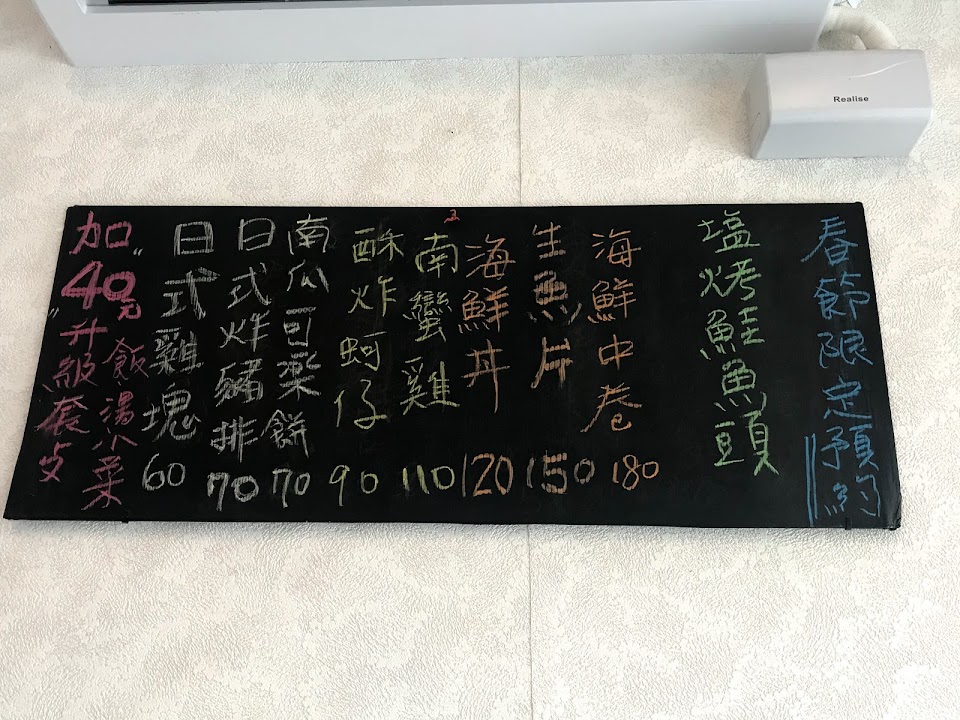 Realise
春節限定預約
塩烤鮭魚頭
海鮮中卷 180
生魚片 150
海鮮丼 120
南蠻雞 110
酥炸蚵仔 90
南瓜可樂餅 70
日式炸豬排 70
日式雞塊 60
加"40元"升級套
飯.湯小菜